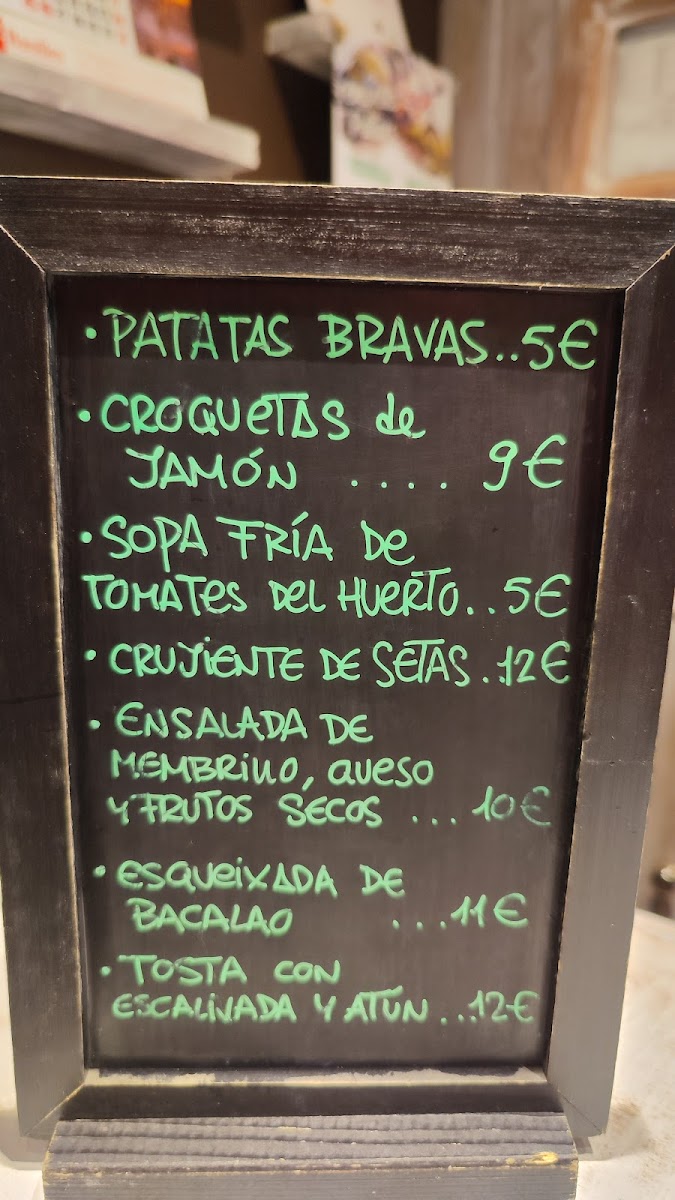 • PATATAS BRAVAS..5€
• CROQUETAS de
JAMÓN .... 9€
• SOPA FRÍA De
TOMATES DEL HUERTO..5€
• CRUJIENTE DE SETAS..12€
• ENSALADA DE
MEMBRILLO, QUESO
Y FRUTOS SECOS ...10€
• ESQUEIXADA DE
BACALAO ...11€
• TOSTA CON
ESCALIVADA Y ATÚN...12€